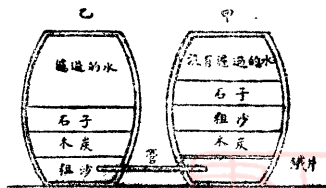 乙 甲
濾過的水
石子
木炭
粗沙
管
没有濾過的水
石子
粗沙
木炭